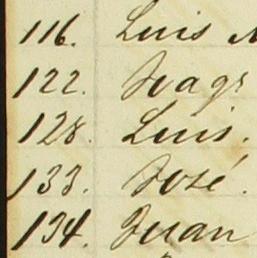 116. Luis
122.
128. Luis.
133. José.
134. Juan